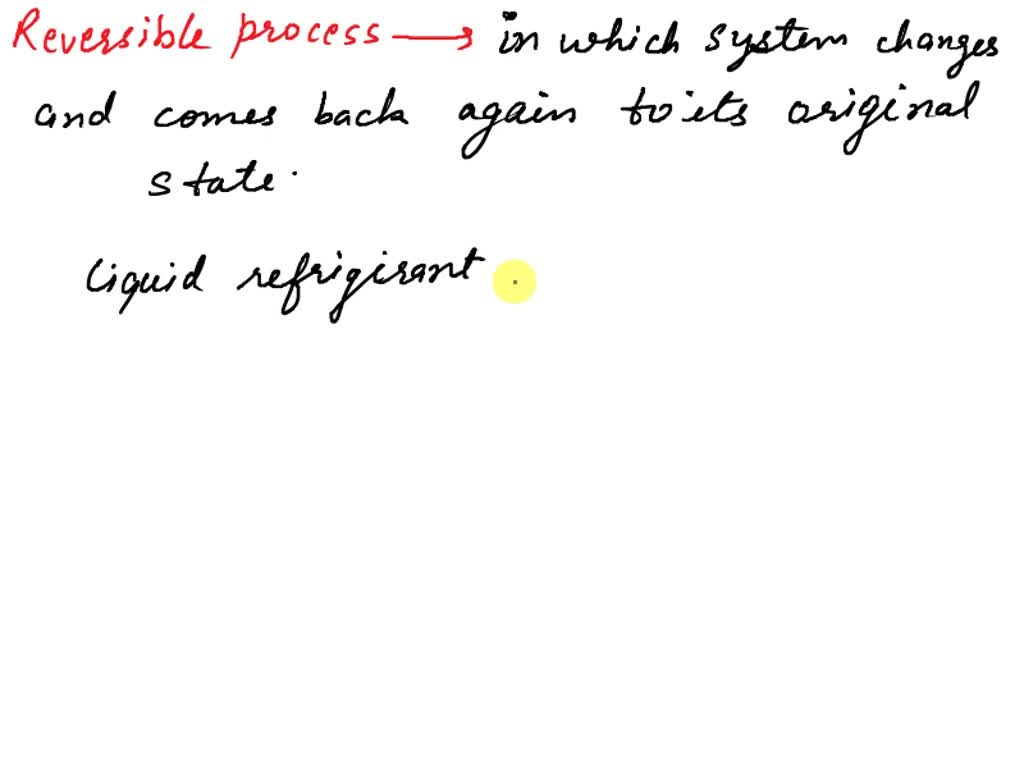 Reversible process → in which system changes
and comes back again to its original
state.
Liquid refrigirant